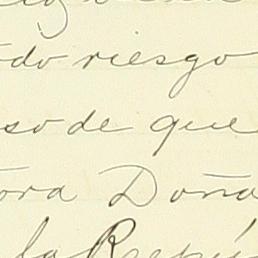 do riesgo
so de que
ora Doña
la Repú